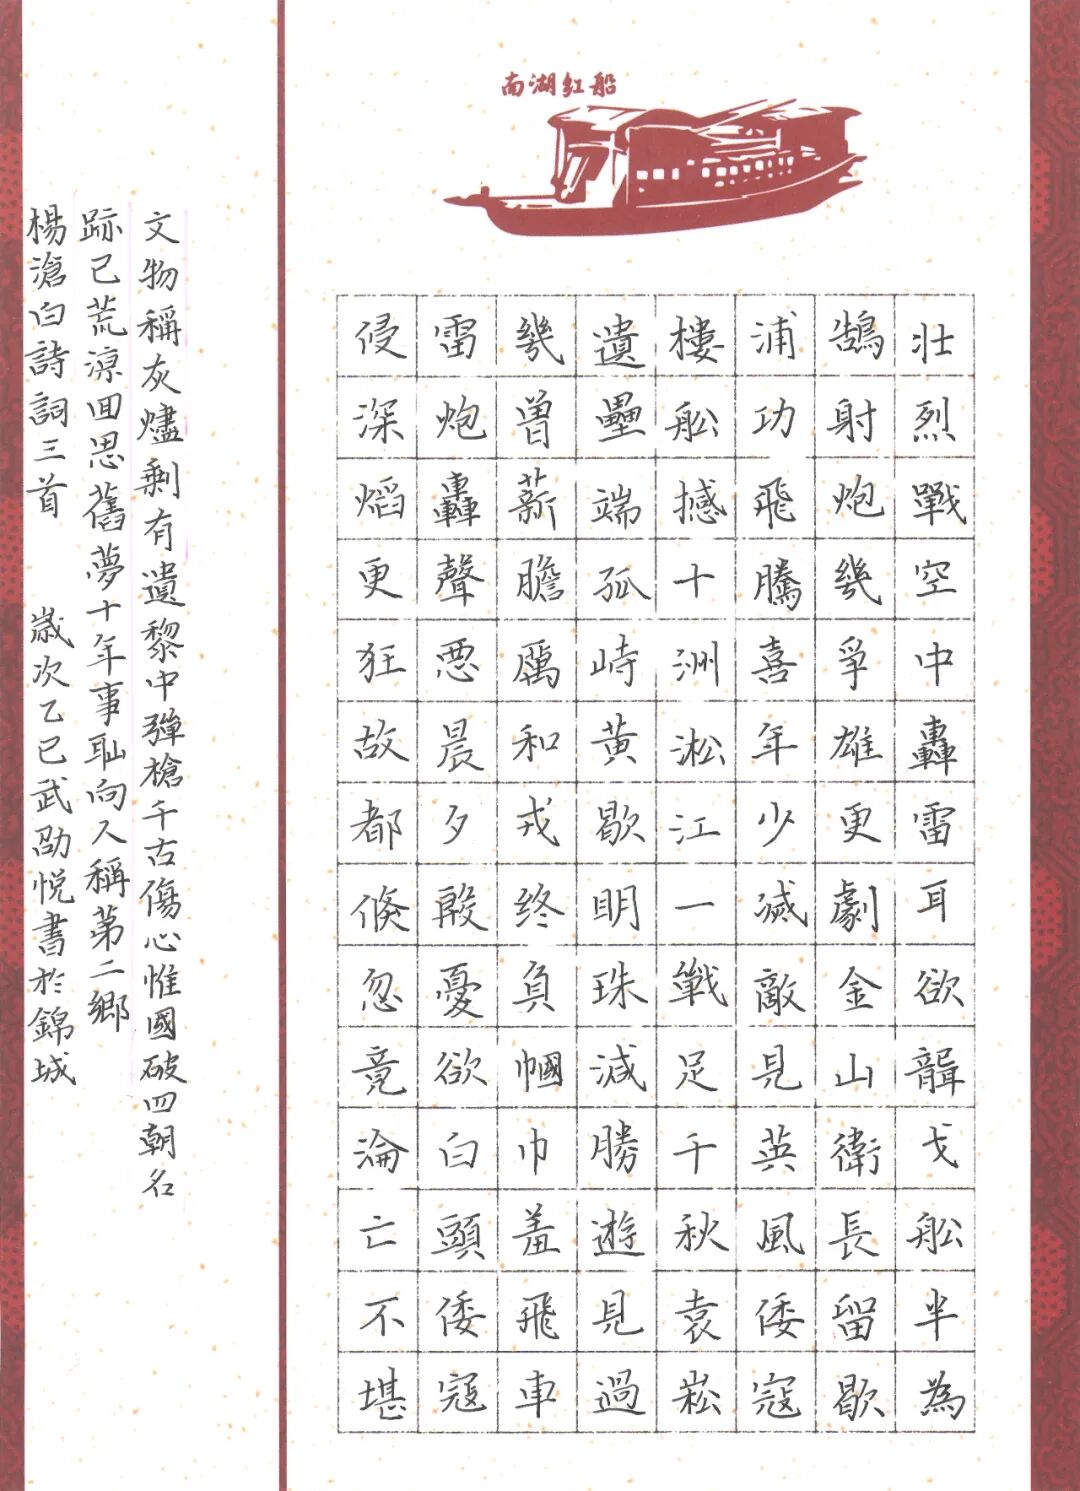 南湖红船
壮烈戰空中轟雷耳欲聾戈舩半為
鵠射炮幾爭雄更劇金山衛長留歇
浦功飛騰喜年少滅敵見英風倭寇
樓舩撼十洲淞江一戰足千秋袁崧
遺壘端孤峙黃歇明珠減勝遊見過
幾曽薪膽厲和戎終負幗巾羞飛車
雷炮轟聲惡晨夕殷憂欲白頭倭寇
侵深焰更狂故都倐忽竟淪亡不堪
文物稱灰燼剩有遺黎中彈槍千古傷心惟國破四朝名
跡已荒涼回思舊夢十年事恥向人稱第二鄉
楊滄白詩詞三首 歲次乙巳武劭悦書於錦城